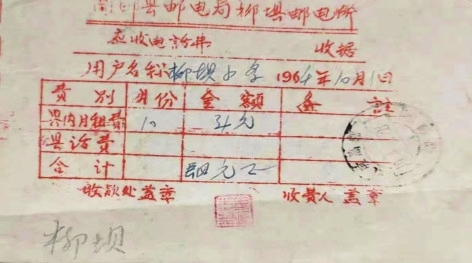 县邮电局柳埧邮电所
应收电話 收据
用户名称柳坝小学 1964年10月1日
费别 月份 金额 备註
县内月租费 10 元
县话费
合计 元正
收款处盖章 收费人盖章
柳坝